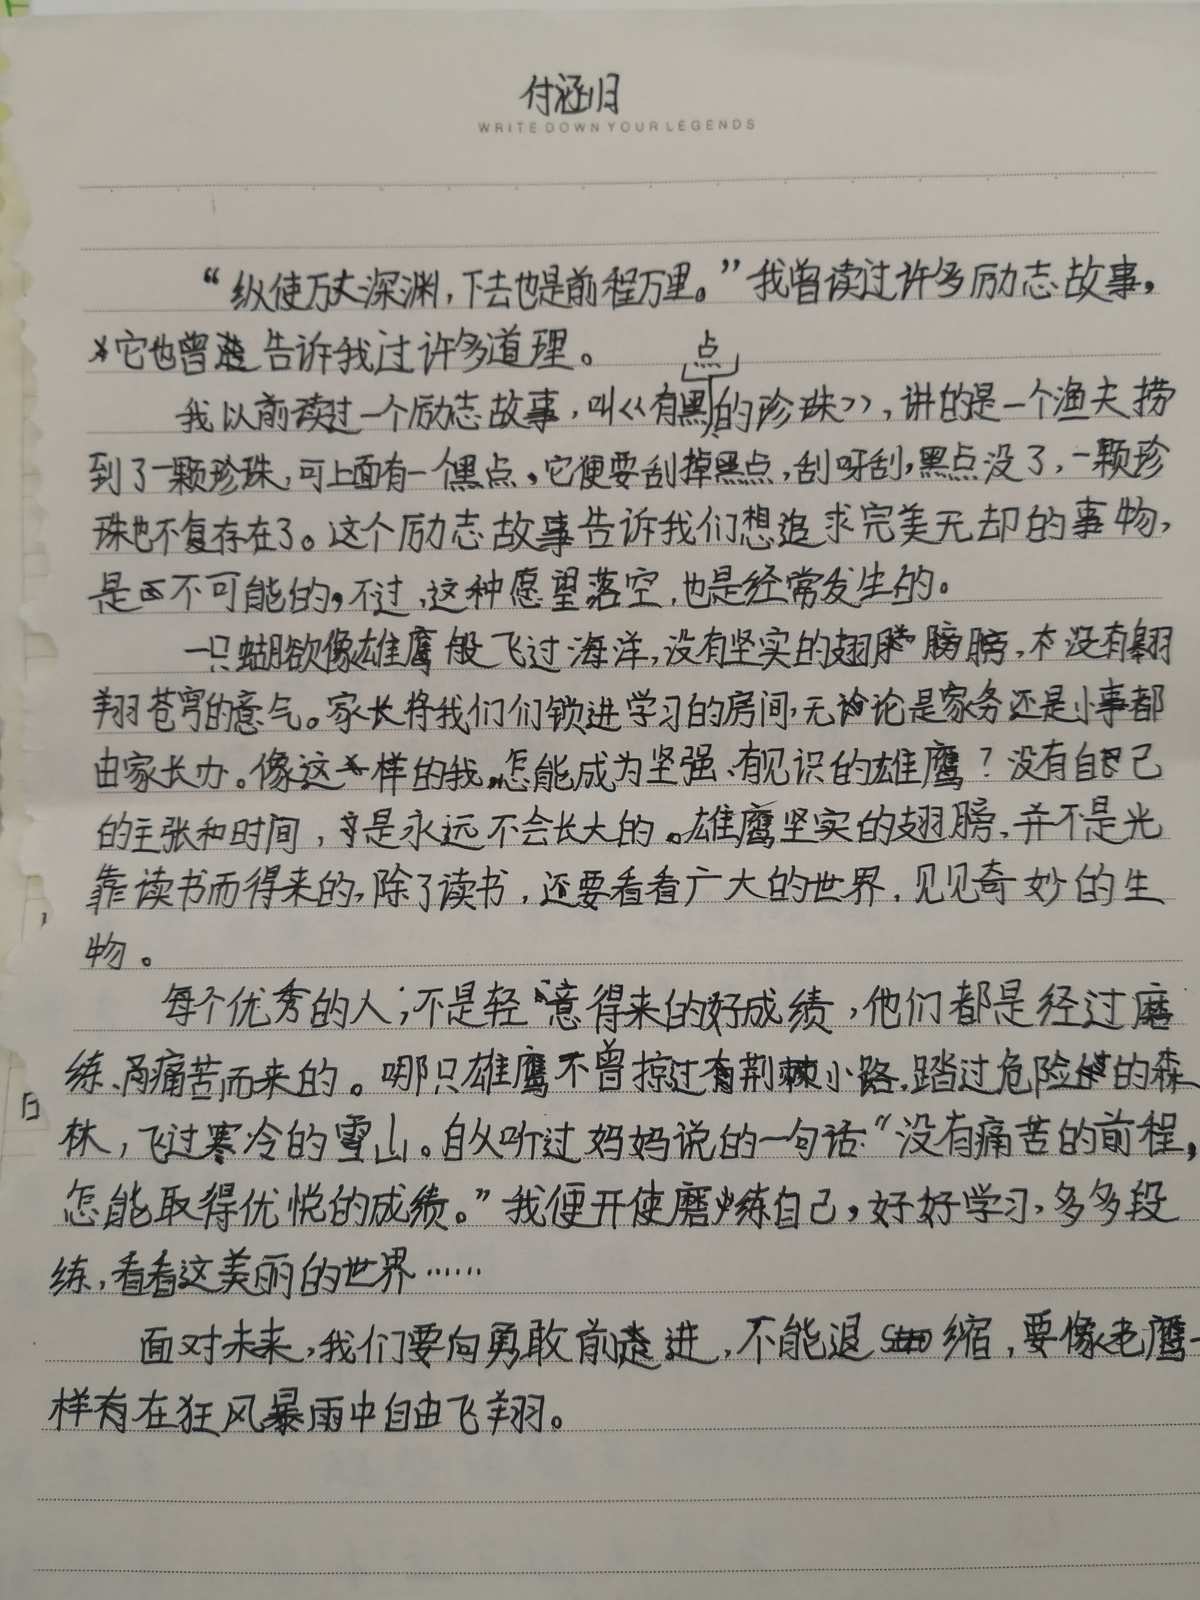 付涵归
WRITE DOWN YOUR LEGENDS
“纵使万丈深渊，下去也是前程万里。”我曾读过许多励志故事，
它也曾告诉我过许多道理。
点
我以前读过一个励志故事，叫《有黑的珍珠》，讲的是一个渔夫捞
到了一颗珍珠，可上面有一个黑点，它便要刮掉黑点，刮呀刮，黑点没了，一颗珍
珠也不复存在了。这个励志故事告诉我们想追求完美无却的事物，
是不可能的，不过，这种愿望落空，也是经常发生的。
一只蝴欲像雄鹰般飞过海洋，没有坚实的翅膀膀，没有翱
翔苍穹的意气。家长将我们们锁进学习的房间，无论是家务还是小事都
由家长办。像这样的我，怎能成为坚强、有见识的雄鹰？没有自己
的主张和时间，是永远不会长大的。雄鹰坚实的翅膀，并不是光
靠读书而得来的，除了读书，还要看看广大的世界，见见奇妙的生
物。
每个优秀的人，不是轻意得来的好成绩，他们都是经过磨
练、痛苦而来的。哪只雄鹰不曾掠过有荆棘小路，踏过危险的森
林，飞过寒冷的雪山。自从听过妈妈说的一句话：“没有痛苦的前程，
怎能取得优悦的成绩。”我便开使磨练自己，好好学习，多多段
练，看看这美丽的世界……
面对未来，我们要向勇敢前进，不能退缩，要像老鹰一
样有在狂风暴雨中自由飞翔。
日